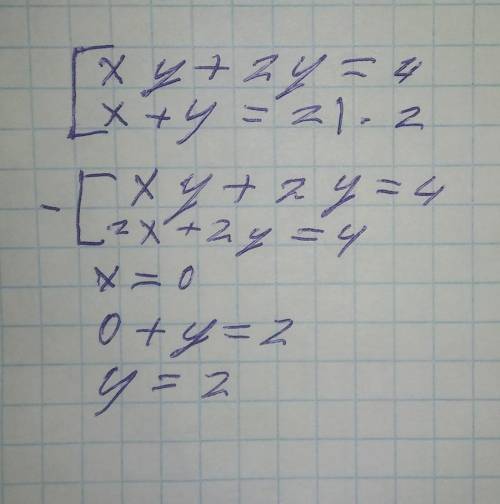 [ x y + 2 y = 4
x + y = 2 | · 2
- [ x y + 2 y = 4
2x + 2y = 4
x = 0
0 + y = 2
y = 2